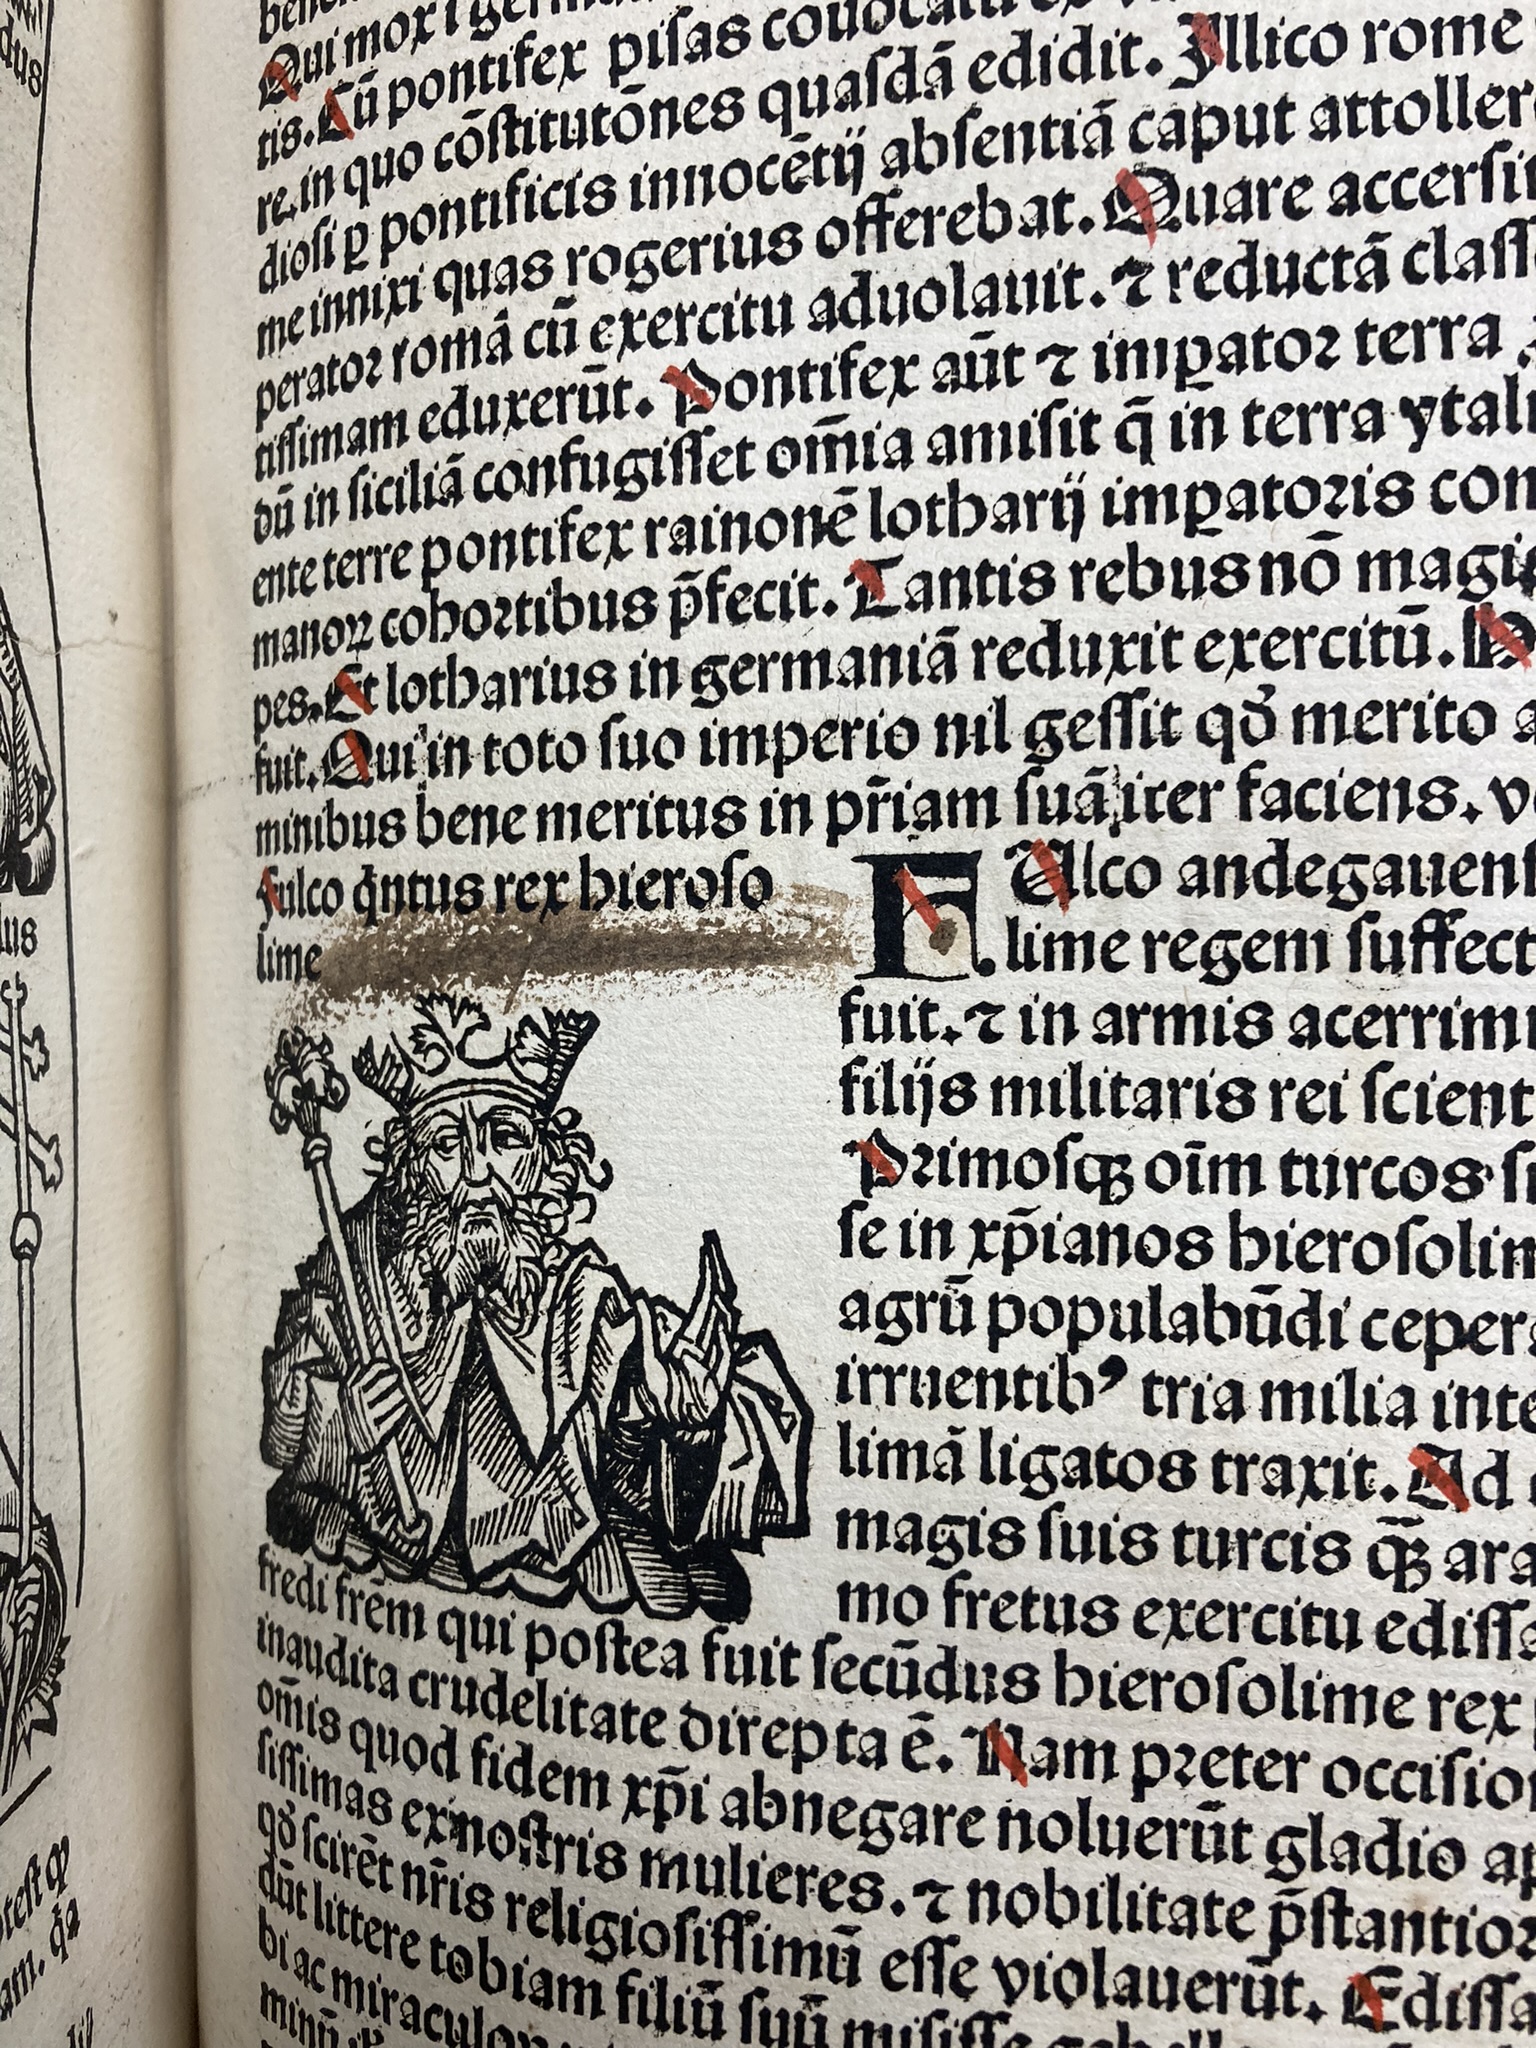 Qui mox i germa
tis. Cū pontifex pisas couocatu
re. in quo cōstitutōnes quasdā edidit. Illico rome
diosi ꝑ pontificis innocētij absentiā caput attoller
me innixi quas rogerius offerebat. Quare accersi
perator romā cū exercitu aduolauit. ⁊ reductā class
tissimam eduxerūt. Pontifex aūt ⁊ imꝑator terra
dū in siciliā confugisset om̄ia amisit q̄ in terra ytali
ente terre pontifex rainonē lotharij imꝑatoris com
manoꝝ cohortibus p̄fecit. Tantis rebus nō magi
pes. Et lotharius in germaniā reduxit exercitū.
fuit. Qui in toto suo imperio nil gessit qđ merito a
minibus bene meritus in pr̄iam suā iter faciens. v
Fulco q̇ntus rex hieroso
lime
FUlco andegauens
lime regem suffect
fuit. ⁊ in armis acerrim
filijs militaris rei scient
Primosqꝫ oīm turcos s
se in xp̄ianos hierosolim
agrū populabūdi ceper
irruentibꝰ tria milia inte
limā ligatos traxit. Ad
magis suis turcis qꝫ̄ ara
mo fretus exercitu edissa
fredi frēm qui postea fuit secūdus hierosolime rex
inaudita crudelitate direpta ē. Nam preter occisio
om̄is quod fidem xp̄i abnegare noluerūt gladio ap
sissimas ex nostris mulieres. ⁊ nobilitate p̄stantior
qđ scirēt nr̄is religiosissimū esse violauerūt. Edissa
dūt littere tobiam filiū suū misisse
bi ac miraculoꝝ
minū
dus
lus